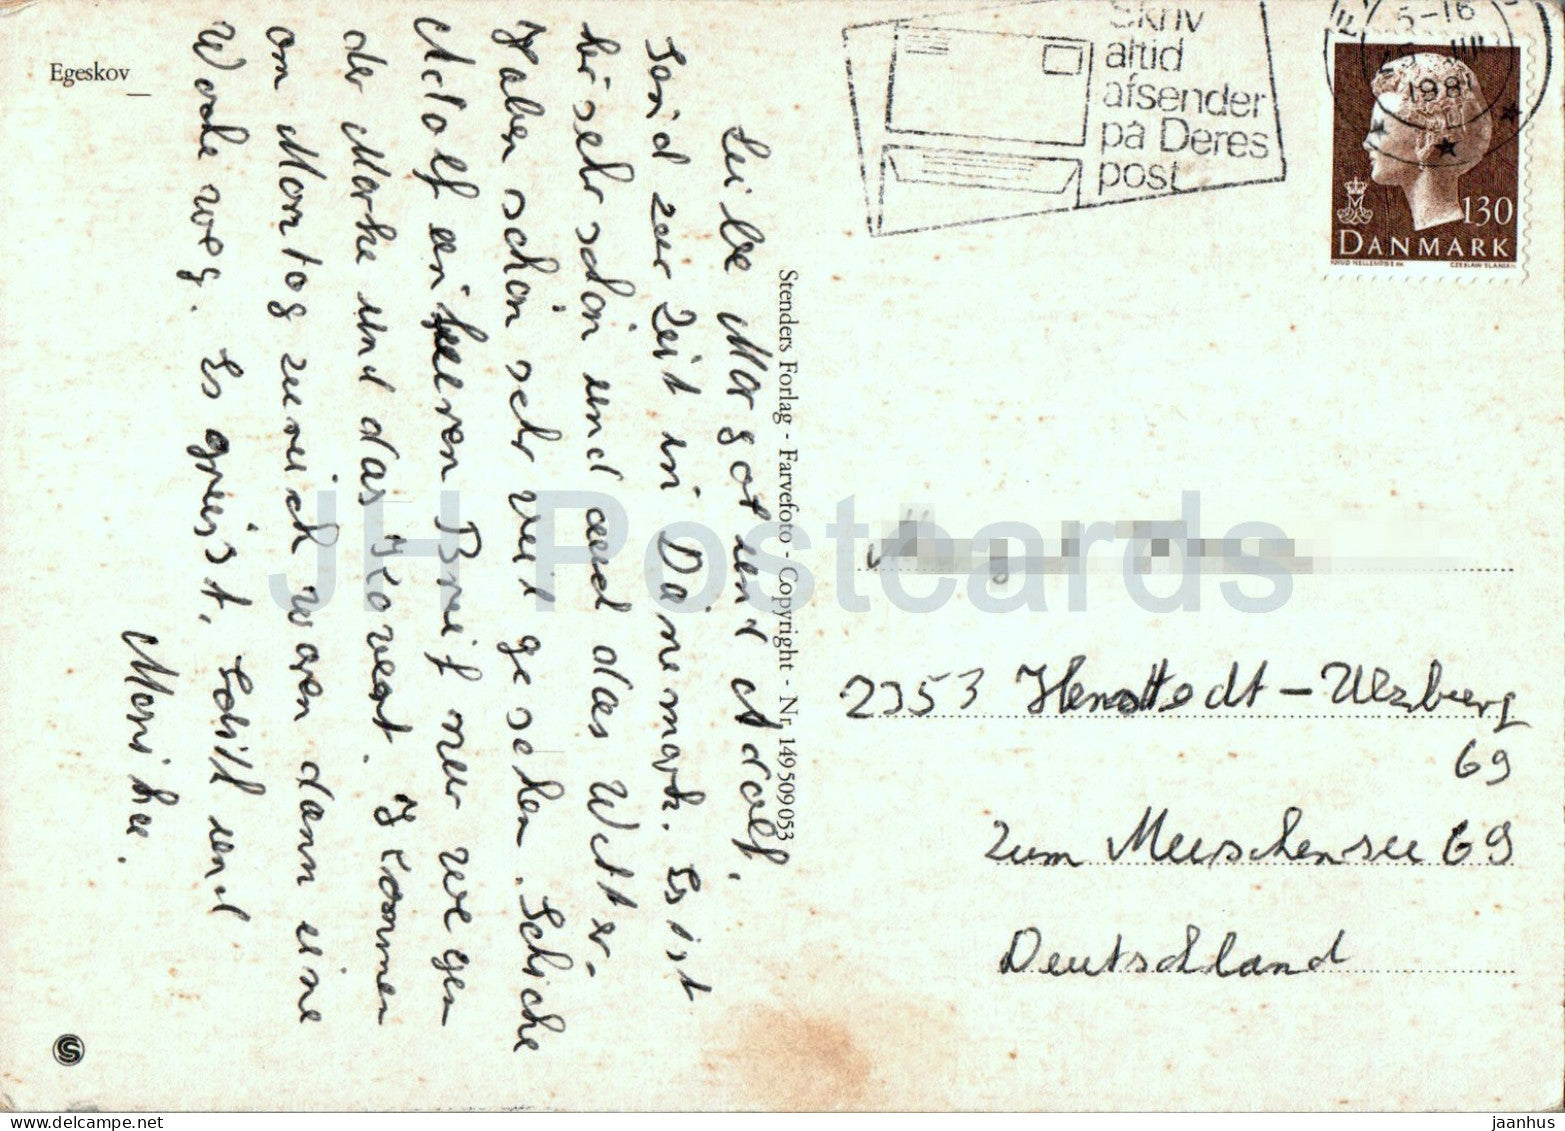 Egeskov
Leibe Margot und Adolf,
Sind zur Zeit in Dänemark. Es ist
hir sehr schön und das Wetter.
Haben schön sehr viel gesehen. Schicke
Adolf ein Breif nur wegen
der Marke und das Kovert. Kommen
am Montag zurück waren dann eine
Woche weg. Es greist, Edith und
Monika.
Stenders Forlag - Farvefoto - Copyright - Nr. 149 509 053
Skriv
altid
afsender
på Deres
post
5-16
1981
130
DANMARK
CZESLAW SLANIA
2353 Henstedt-Ulzburg
69
Zum Meeschensee 69
Deutschland
JH Postcards
delcampe.net
jaanhus